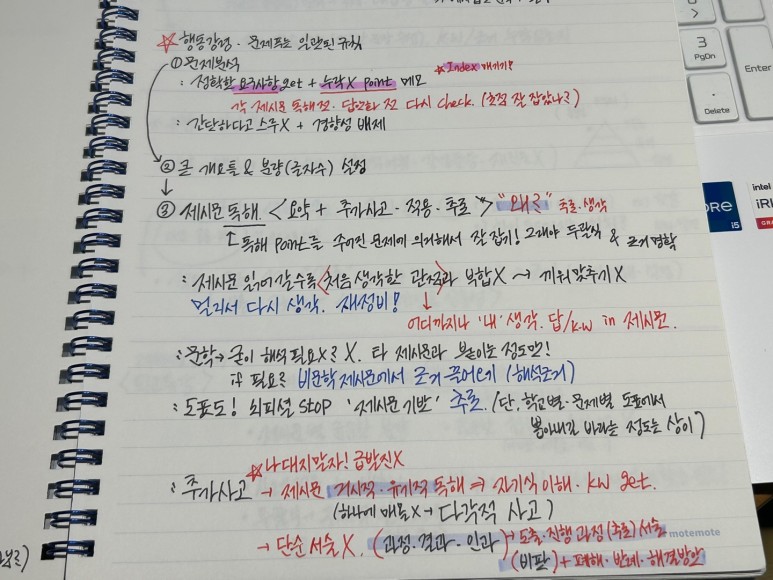 ☆ 행동강령 · 문제푸는 일관된 규칙
① 문제분석 ☆ Index 매기기!
: 정확한 요구사항 get + 누락X point 메모
각 제시문 독해 전. 답안화 전 다시 check. (초점 잘 잡았나?)
: 간단하다고 스루X + 경향성 배제
② 큰 개요틀 & 분량(글자수) 설정
③ 제시문 독해. <요약 + 추가사고 · 적용 · 추론> "왜?" 추론 · 생각
↑ 독해 Point는 주어진 문제에 의거해서 잘 잡기! 그래야 두괄식 & 근거명확
: 제시문 읽어갈수록 <처음 생각한 관점>과 부합X → 끼워맞추기X
멀리서 다시 생각. 재정비!
어디까지나 '내' 생각. 답/k.w in 제시문.
: 문학 → 굳이 해석 필요X? X. 타 제시문과 붙이는 정도만!
if 필요? 비문학 제시문에서 근거 끌어오기 (해석근거)
: 도표도! 뇌피셜 stop '제시문 기반' 추론. (단, 학교별 · 문제별 도표에서
뽑아내길 바라는 정도는 상이)
☆ 나대지말자! 급발진X
: 추가사고 → 제시문 거시적 · 유기적 독해 ⇒ 자기식 이해 · kw get.
(하나에 매몰X → 다각적 사고)
→ 단순 서술X. (과정 · 결과 · 인과) → 도출 · 진행 과정(추론) 서술
(비판) + 폐해 · 반례 · 해결방안
motemote
3
PgDn
Enter
Delete
ORE
i5
intel
iRI
GRA